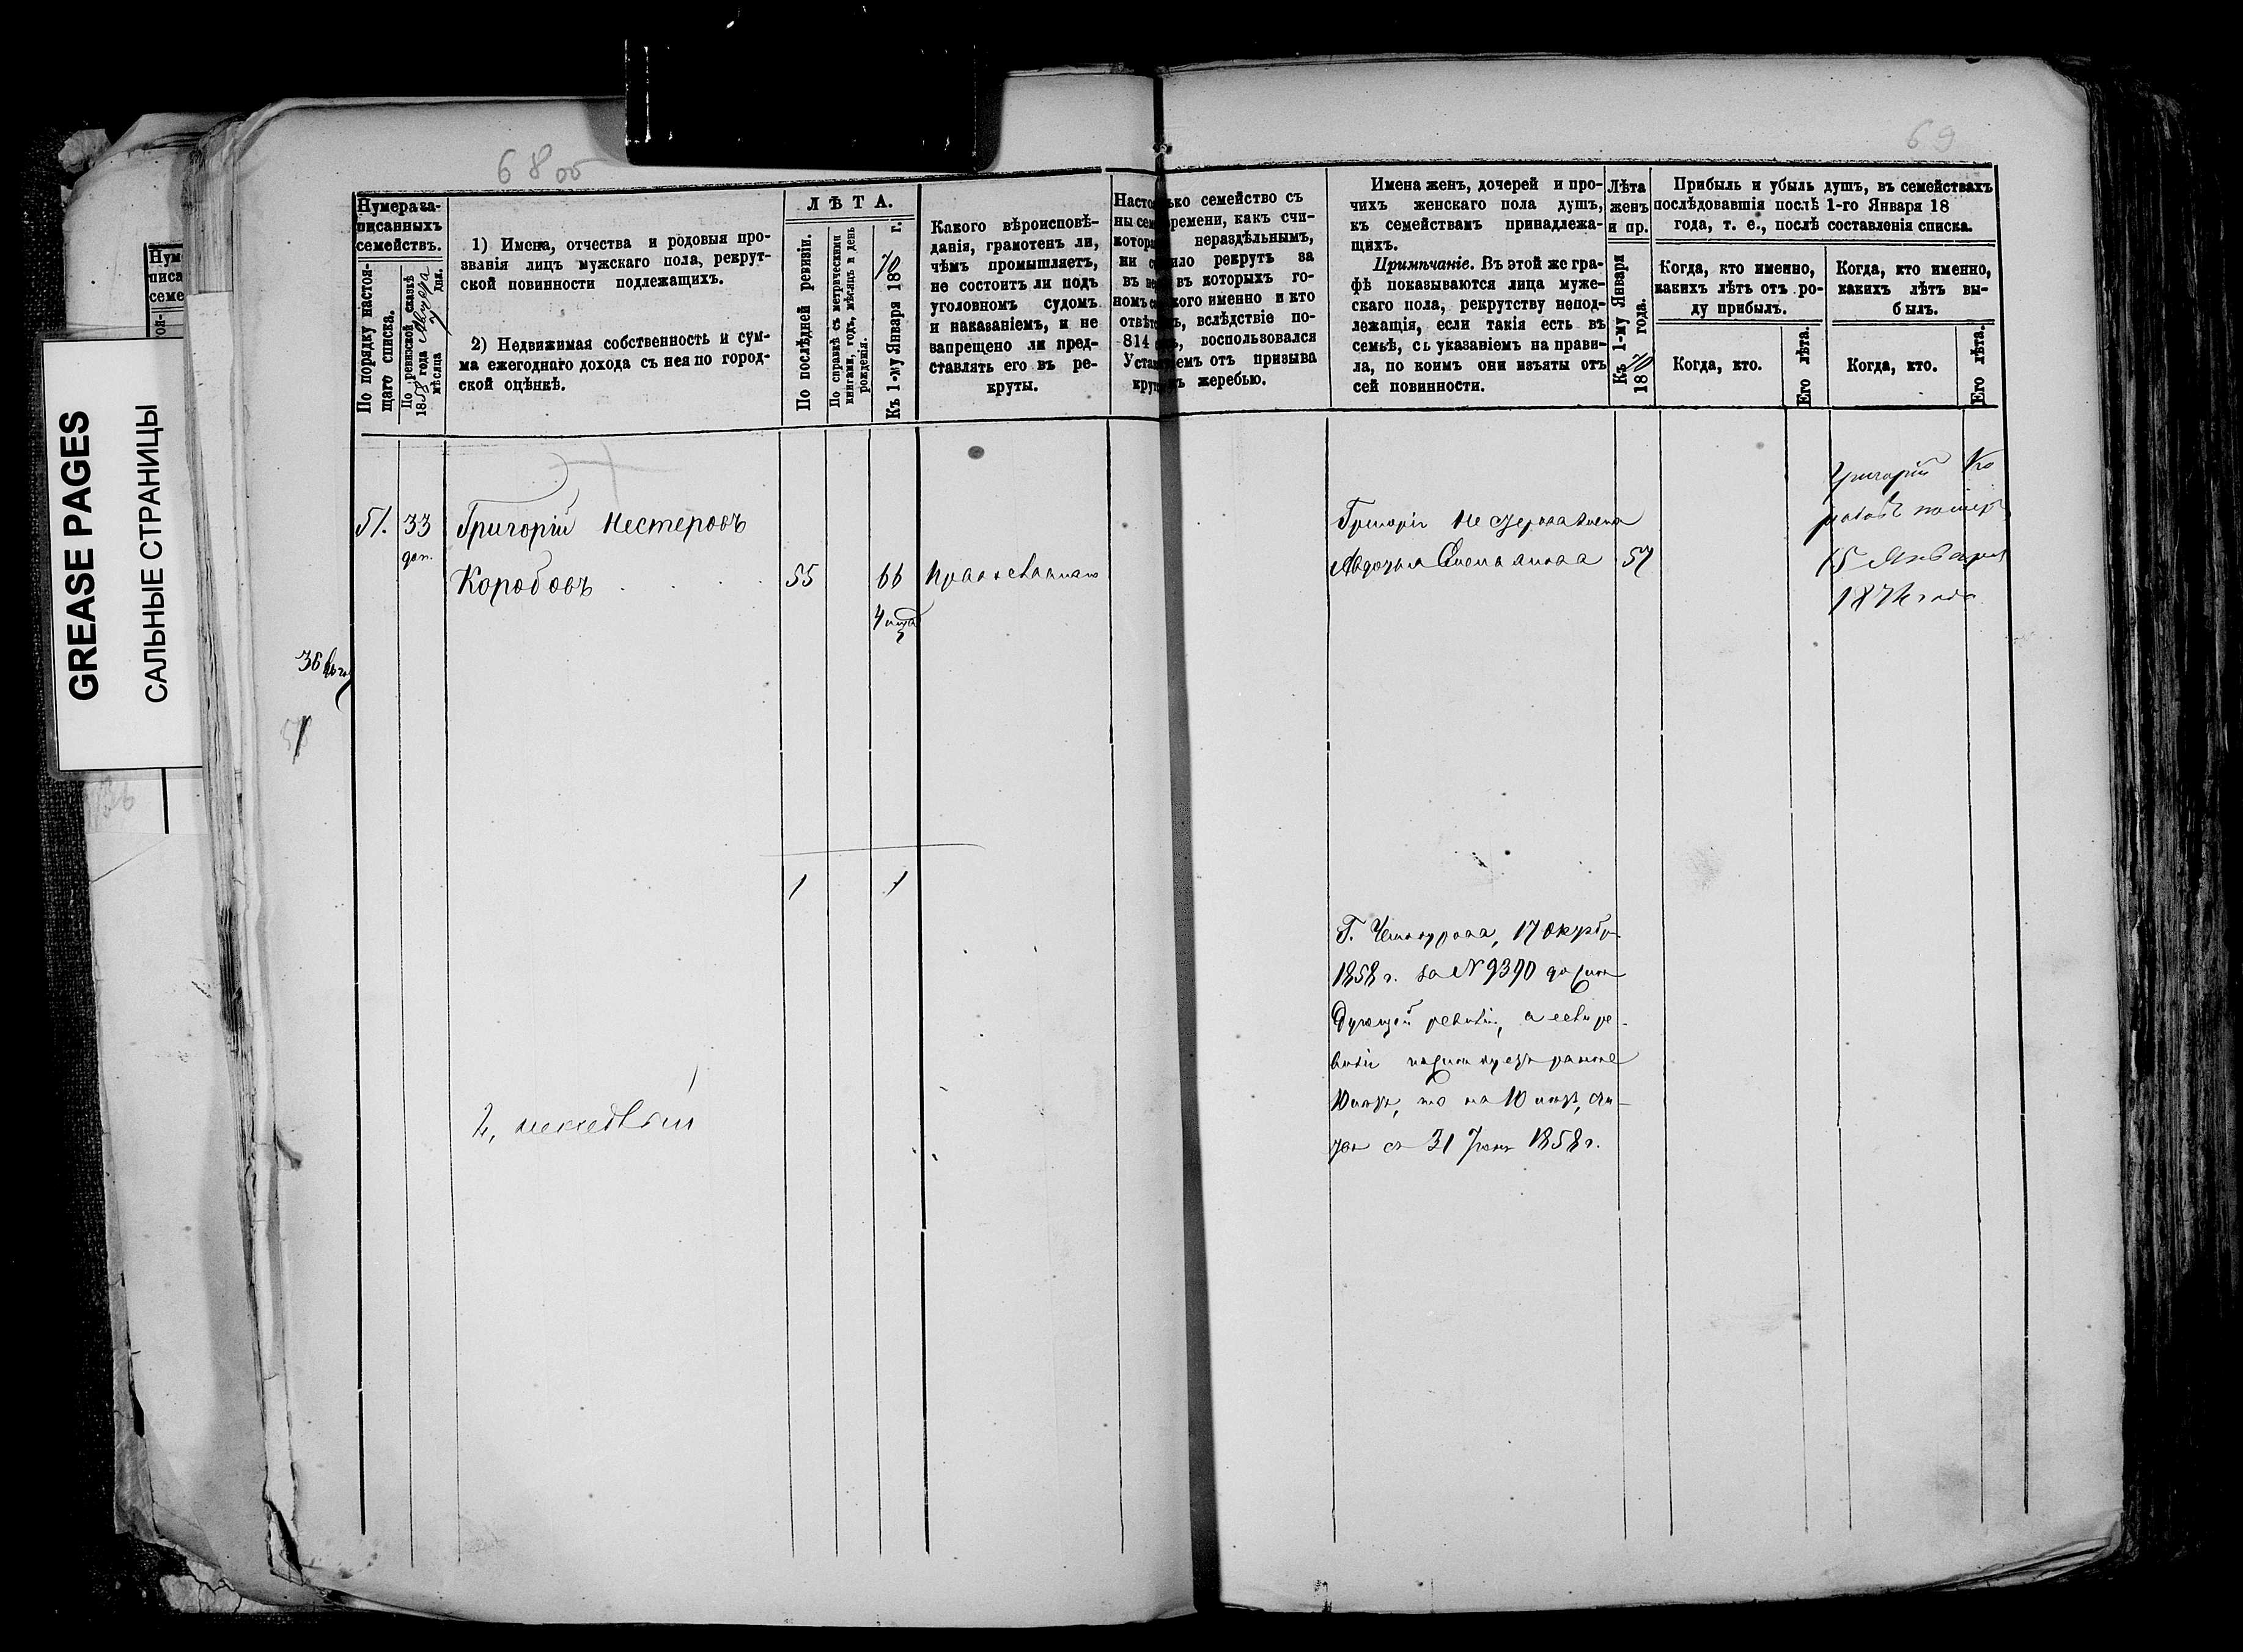 68 об
69
GREASE PAGES
САЛЬНЫЕ СТРАНИЦЫ
Нумера за-
писанныхъ
семействъ.
По порядку настоя-
щаго списка.
По ревизской сказкѣ
1858 года
мѣсяца дня.
1) Имена, отчества и родовыя про-
званія лицъ мужскаго пола, рекрут-
ской повинности подлежащихъ.
2) Недвижимая собственность и сум-
ма ежегоднаго дохода съ нея по город-
ской оцѣнкѣ.
ЛѢТА.
По послѣдней ревизіи.
По справкѣ съ метрическими
книгами, годъ, мѣсяцъ и день
рожденія.
Къ 1-му Января 1870 г.
Какого вѣроисповѣ-
данія, грамотенъ ли,
чѣмъ промышляетъ,
не состоитъ ли подъ
уголовномъ судомъ
и наказаніемъ, и не
запрещено ли пред-
ставлять его въ ре-
круты.
семейство съ
времени, какъ счи-
нераздѣльнымъ,
рекрутъ за
въ которыхъ го-
кого именно и кто
вслѣдствіе по-
814 воспользовался
отъ призыва
жеребью.
Имена женъ, дочерей и про-
чихъ женскаго пола душъ,
къ семействамъ принадлежа-
щихъ.
Примѣчаніе. Въ этой же гра-
фѣ показываются лица муже-
скаго пола, рекрутству непод-
лежащія, если такія есть въ
семьѣ, съ указаніемъ на прави-
ла, по коимъ они изъяты отъ
сей повинности.
Лѣта
женъ
и пр.
Къ 1-му Января
1870 года.
Прибыль и убыль душъ, въ семействахъ
послѣдовавшія послѣ 1-го Января 18
года, т. е., послѣ составленія списка.
Когда, кто именно,
какихъ лѣтъ отъ ро-
ду прибылъ.
Когда, кто.
Его лѣта.
Когда, кто именно,
какихъ лѣтъ вы-
былъ.
Когда, кто.
Его лѣта.
51. 33 Григорій Нестеровъ
доп.
Коробовъ 55 66
Авдотья 57
Григорій Ко
15 Января
1874 года
36
51
1 1
17 Октябр
1858 г. за № 9390
ревизіи, а если ре-
визіи ранѣе
10 лѣтъ, то на 10 лѣтъ, счи-
тая съ 31 1858 г.